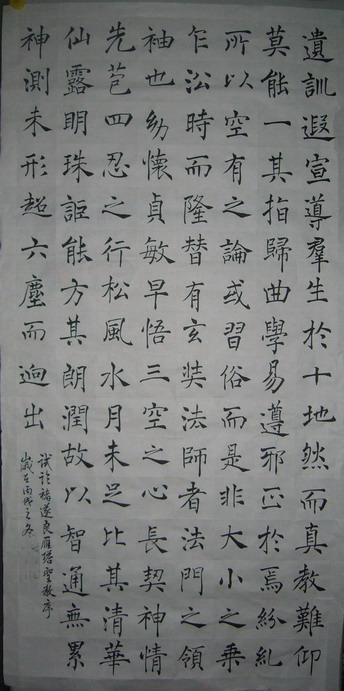 遺訓遐宣導羣生於十地然而真教難仰
莫能一其指歸曲學易遵邪正於焉紛糺
所以空有之論或習俗而是非大小之乘
乍沿時而隆替有玄奘法師者法門之領
袖也幼懷貞敏早悟三空之心長契神情
先苞四忍之行松風水月未足比其清華
仙露眀珠詎能方其朗潤故以智通無累
神測未形超六塵而逈出
試褚遂良雁塔聖教序
歲在丙戌之冬